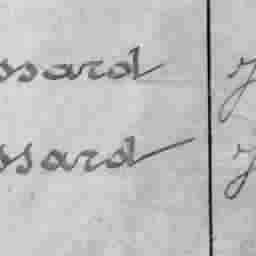 ssard
ssard